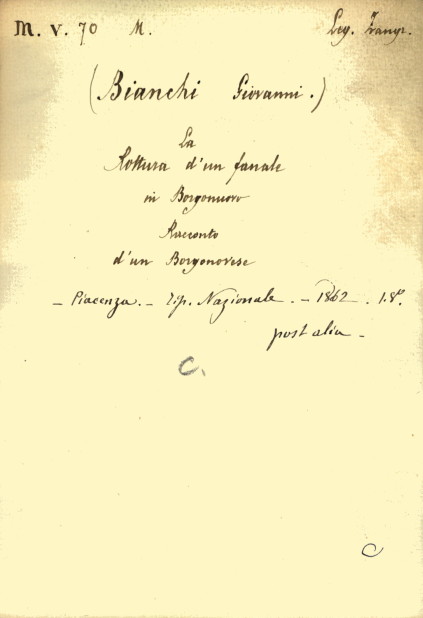 M. V. 70 M. Leg.
(Bianchi Giovanni.)
La
Rottura d'un fanale
in Borgonuovo
Racconto
d'un Borgonovese
- Piacenza. - Tip. Nazionale. - 1862. 18°
post alia -
C.
C